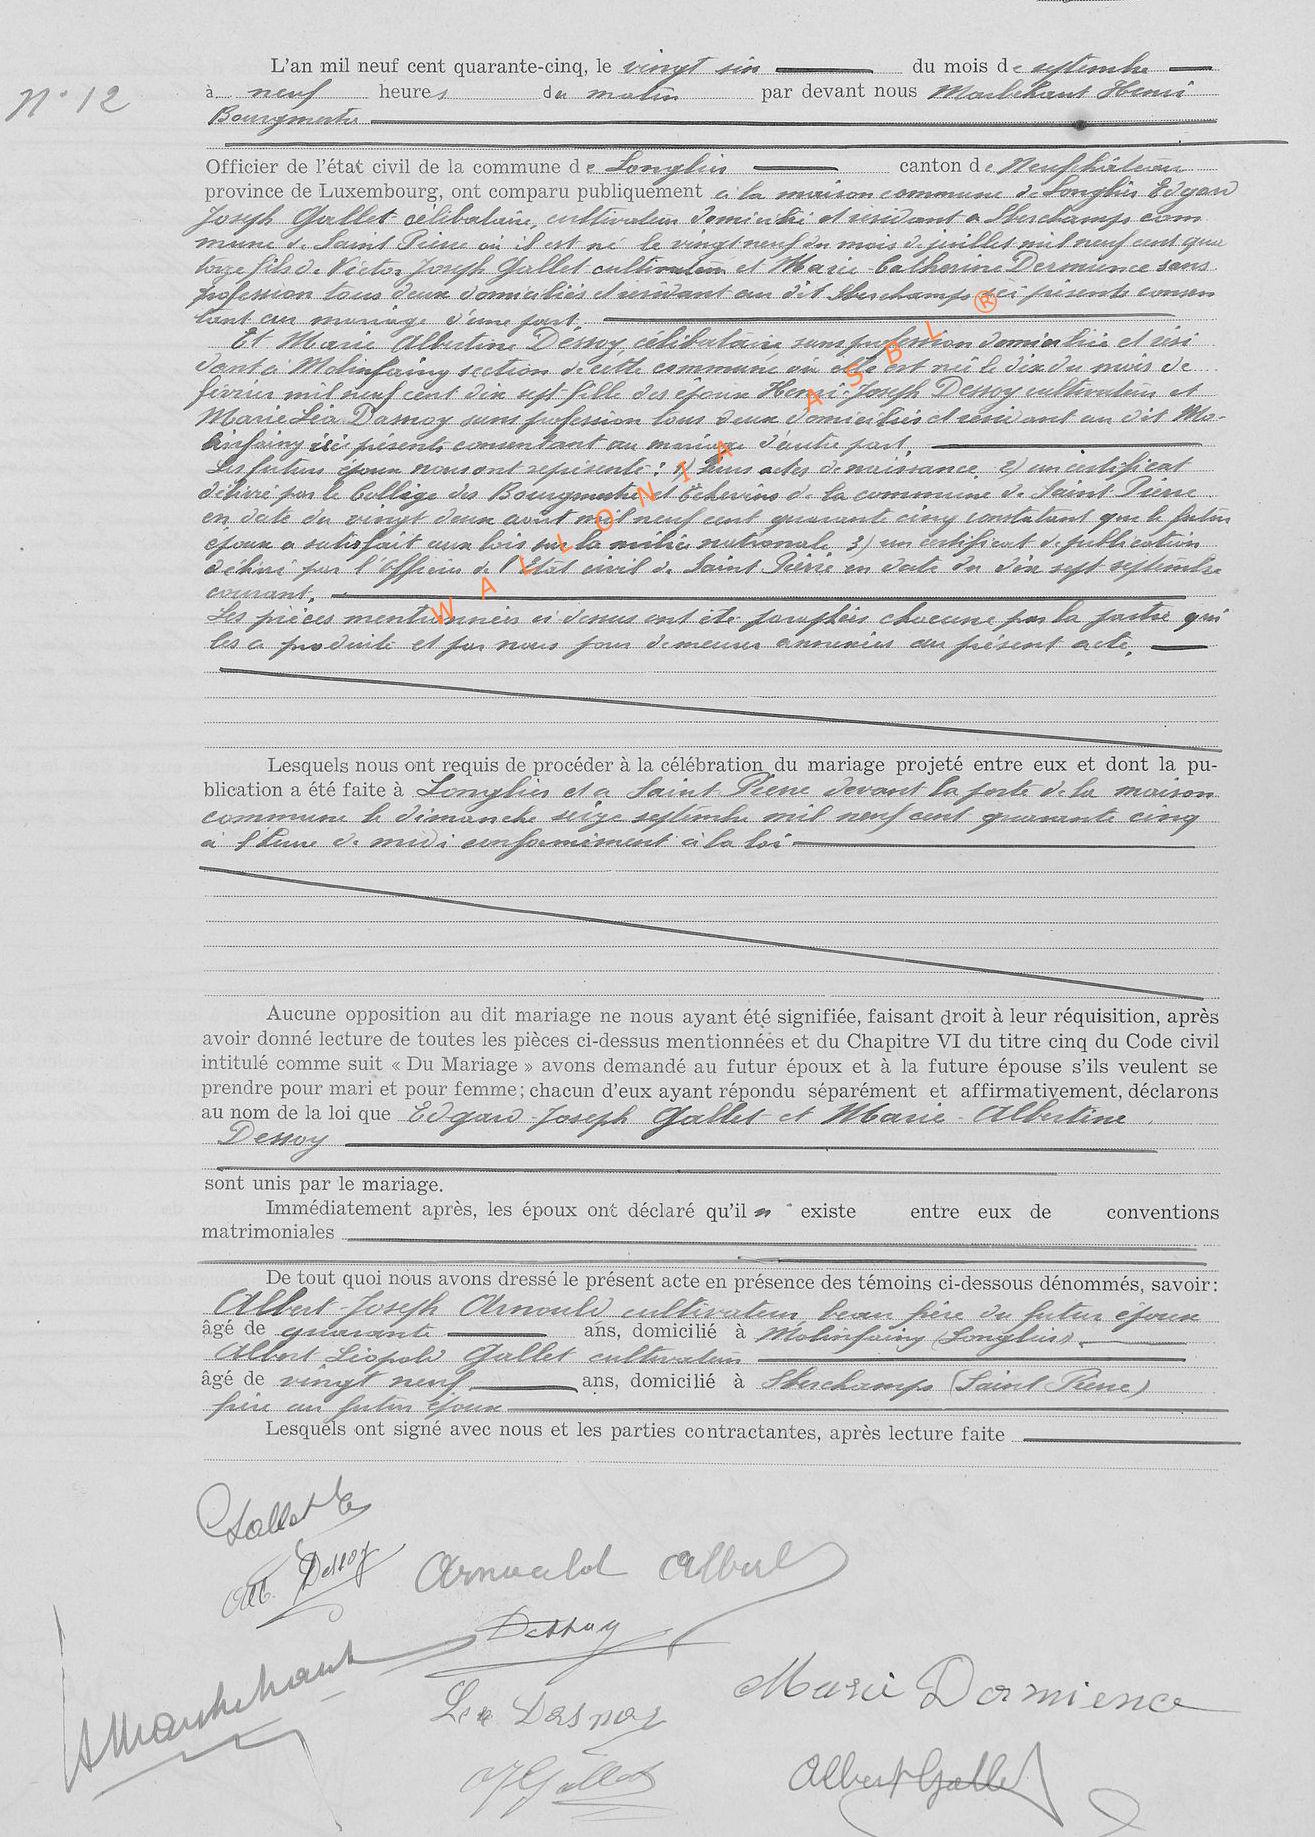 N° 12
L'an mil neuf cent quarante-cinq, le vingt six du mois de septembre
à neuf heures du matin par devant nous Marchhant Henri
Bourgmestre
Officier de l'état civil de la commune de Longlier canton de Neufchâteau
province de Luxembourg, ont comparu publiquement à la maison commune de Longlier Edgard
Joseph Gallet célibataire, cultivateur domicilié et résidant à Sberchamps com
mune de Saint Pierre où il est né le vingt neuf du mois de juillet mil neuf cent qua
torze fils de Victor Joseph Gallet cultivateur et Marie Catherine Dermience sans
profession tous deux domiciliés et résidant au dit Sberchamps ici présents consen
tant au mariage d'une part
Et Marie Albertine Dessoy, célibataire sans profession domiciliée et rési
dant à Molinfaing section de cette commune où elle est née le dix du mois de
février mil neuf cent dix sept fille des époux Henri-Joseph Dessoy cultivateur et
Marie Léa Dasnoy sans profession tous deux domiciliés et résidant au dit Mo-
linfaing ici présents consentant au mariage d'autre part.
Les futurs époux nous ont représenté : 1) leurs actes de naissance 2) un certificat
délivré par le Collège des Bourgmestre et Echevins de la commune de Saint Pierre
en date du vingt deux août mil neuf cent quarante cinq constatant que le futur
époux a satisfait aux lois sur la milice nationale 3) un certificat de publication
délivré par l'Officier de l'Etat civil de Saint Pierre en date du dix sept septembre
courant.
Les pièces mentionnées ci dessus ont été paraphées chacune par la partie qui
les a produite et par nous pour demeurer annexées au présent acte.
WALLONIA ASBL ®
Lesquels nous ont requis de procéder à la célébration du mariage projeté entre eux et dont la pu-
blication a été faite à Longlier et à Saint Pierre devant la porte de la maison
commune le dimanche seize septembre mil neuf cent quarante cinq
à l'heure de midi conformément à la loi
Aucune opposition au dit mariage ne nous ayant été signifiée, faisant droit à leur réquisition, après
avoir donné lecture de toutes les pièces ci-dessus mentionnées et du Chapitre VI du titre cinq du Code civil
intitulé comme suit « Du Mariage » avons demandé au futur époux et à la future épouse s'ils veulent se
prendre pour mari et pour femme; chacun d'eux ayant répondu séparément et affirmativement, déclarons
au nom de la loi que Edgard-Joseph Gallet et Marie-Albertine
Dessoy
sont unis par le mariage.
Immédiatement après, les époux ont déclaré qu'il n' existe entre eux de conventions
matrimoniales
De tout quoi nous avons dressé le présent acte en présence des témoins ci-dessous dénommés, savoir:
Albert-Joseph Arnould cultivateur, beau frère du futur époux
âgé de quarante ans, domicilié à Molinfaing (Longlier)
Albert Léopold Gallet cultivateur
âgé de vingt neuf ans, domicilié à Sberchamps (Saint Pierre)
frère au futur époux
Lesquels ont signé avec nous et les parties contractantes, après lecture faite
Gallet E
Alb. Dessoy
Arnould Albert
Dessoy
Marchhant
Marie Dermience
Léa Dasnoy
Gallet
Albert Gallet